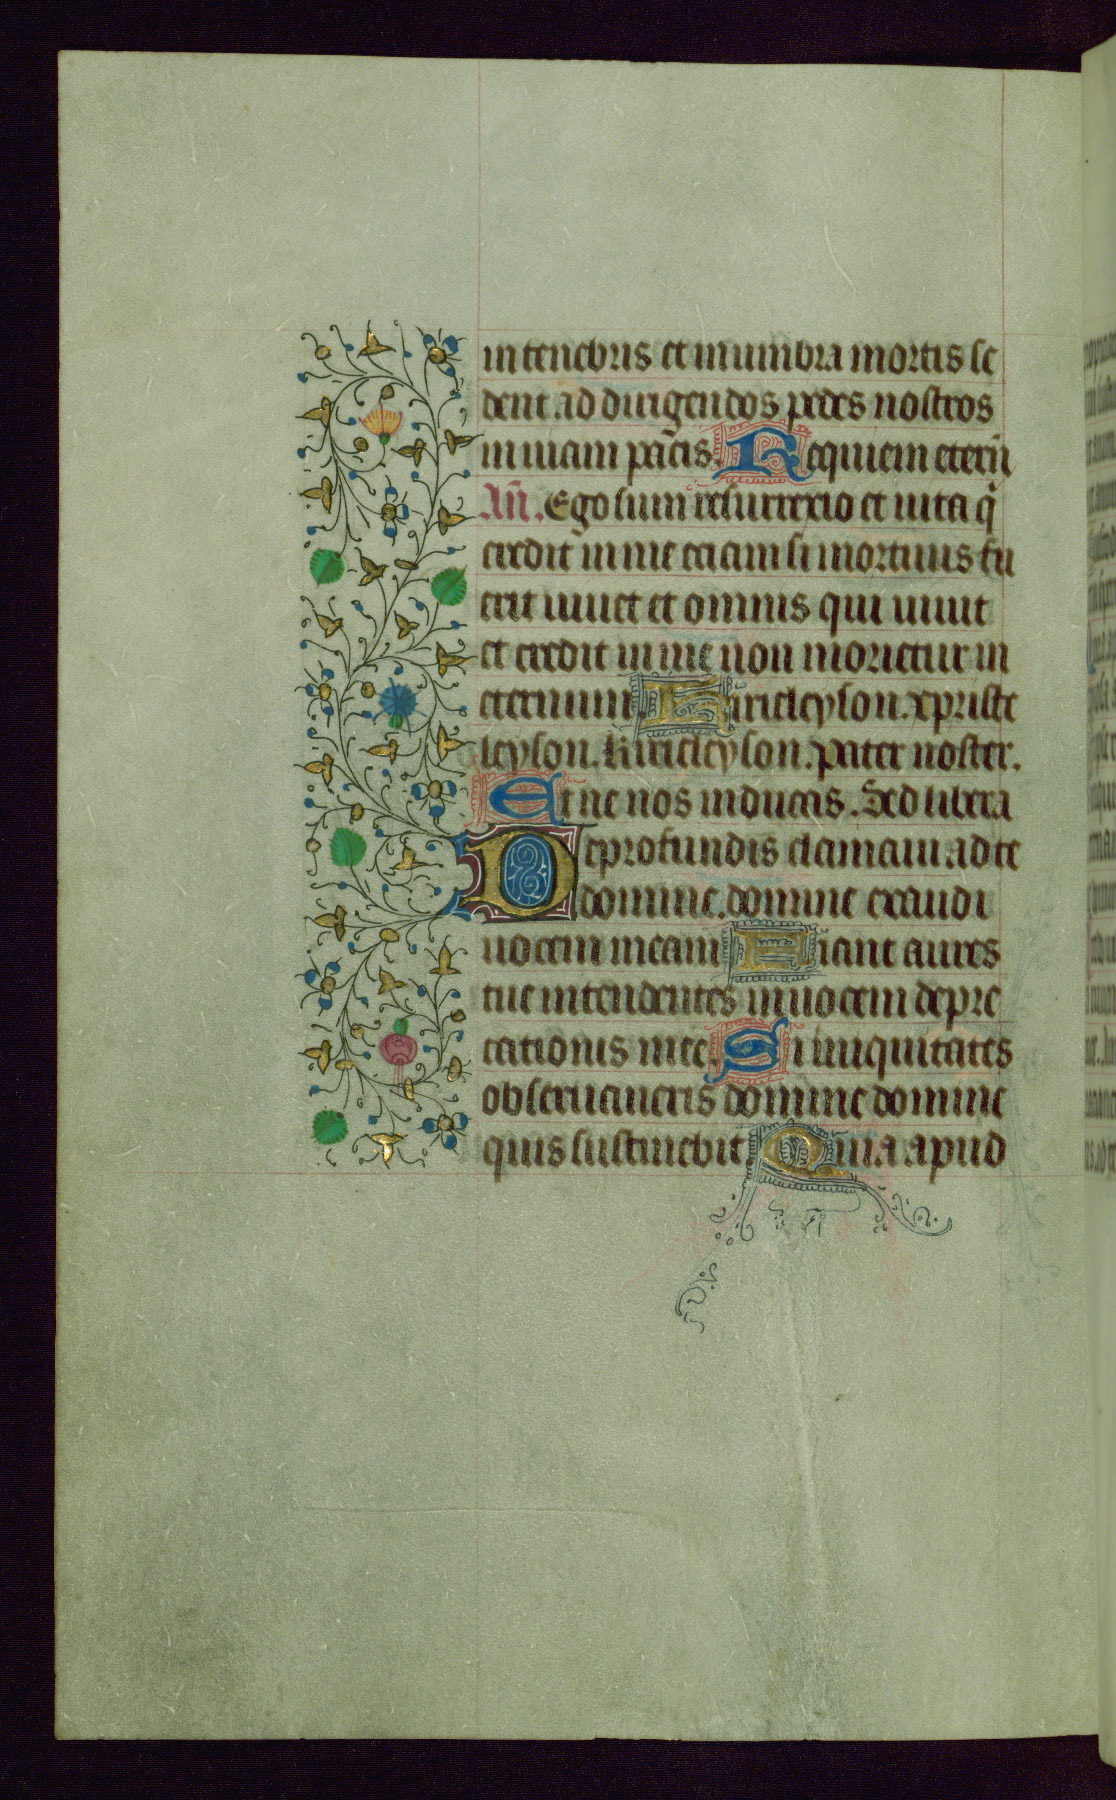 in tenebris et in umbra mortis se
dent ad dirigendos pedes nostros
in uiam pacis. Requiem etern̄
An̄. Ego sum resurrexio et uita q̄
credit in me eciam si mortuus fu
erit uiuet et omnis qui uiuit
et credit in me non morietur in
eternum. Kirieleyson. xpriste
leyson. kirieleyson. pater noster.
Et ne nos inducas. Sed libera
De profundis clamaui ad te
domine. domine exaudi
uocem meam Fiant aures
tue intendentes in uocem depre
cationis mee. Si iniquitates
obseruaueris domine domine
quis sustinebit Quia apud